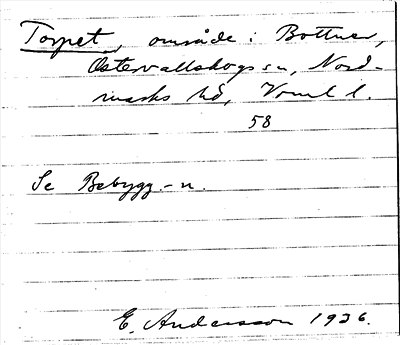 Torpet, område i Bottnen,
Östervallskogs sn, Nord-
marks hd, Vrml l.
58
Se Bebygg.-n.
E. Andersson 1926.